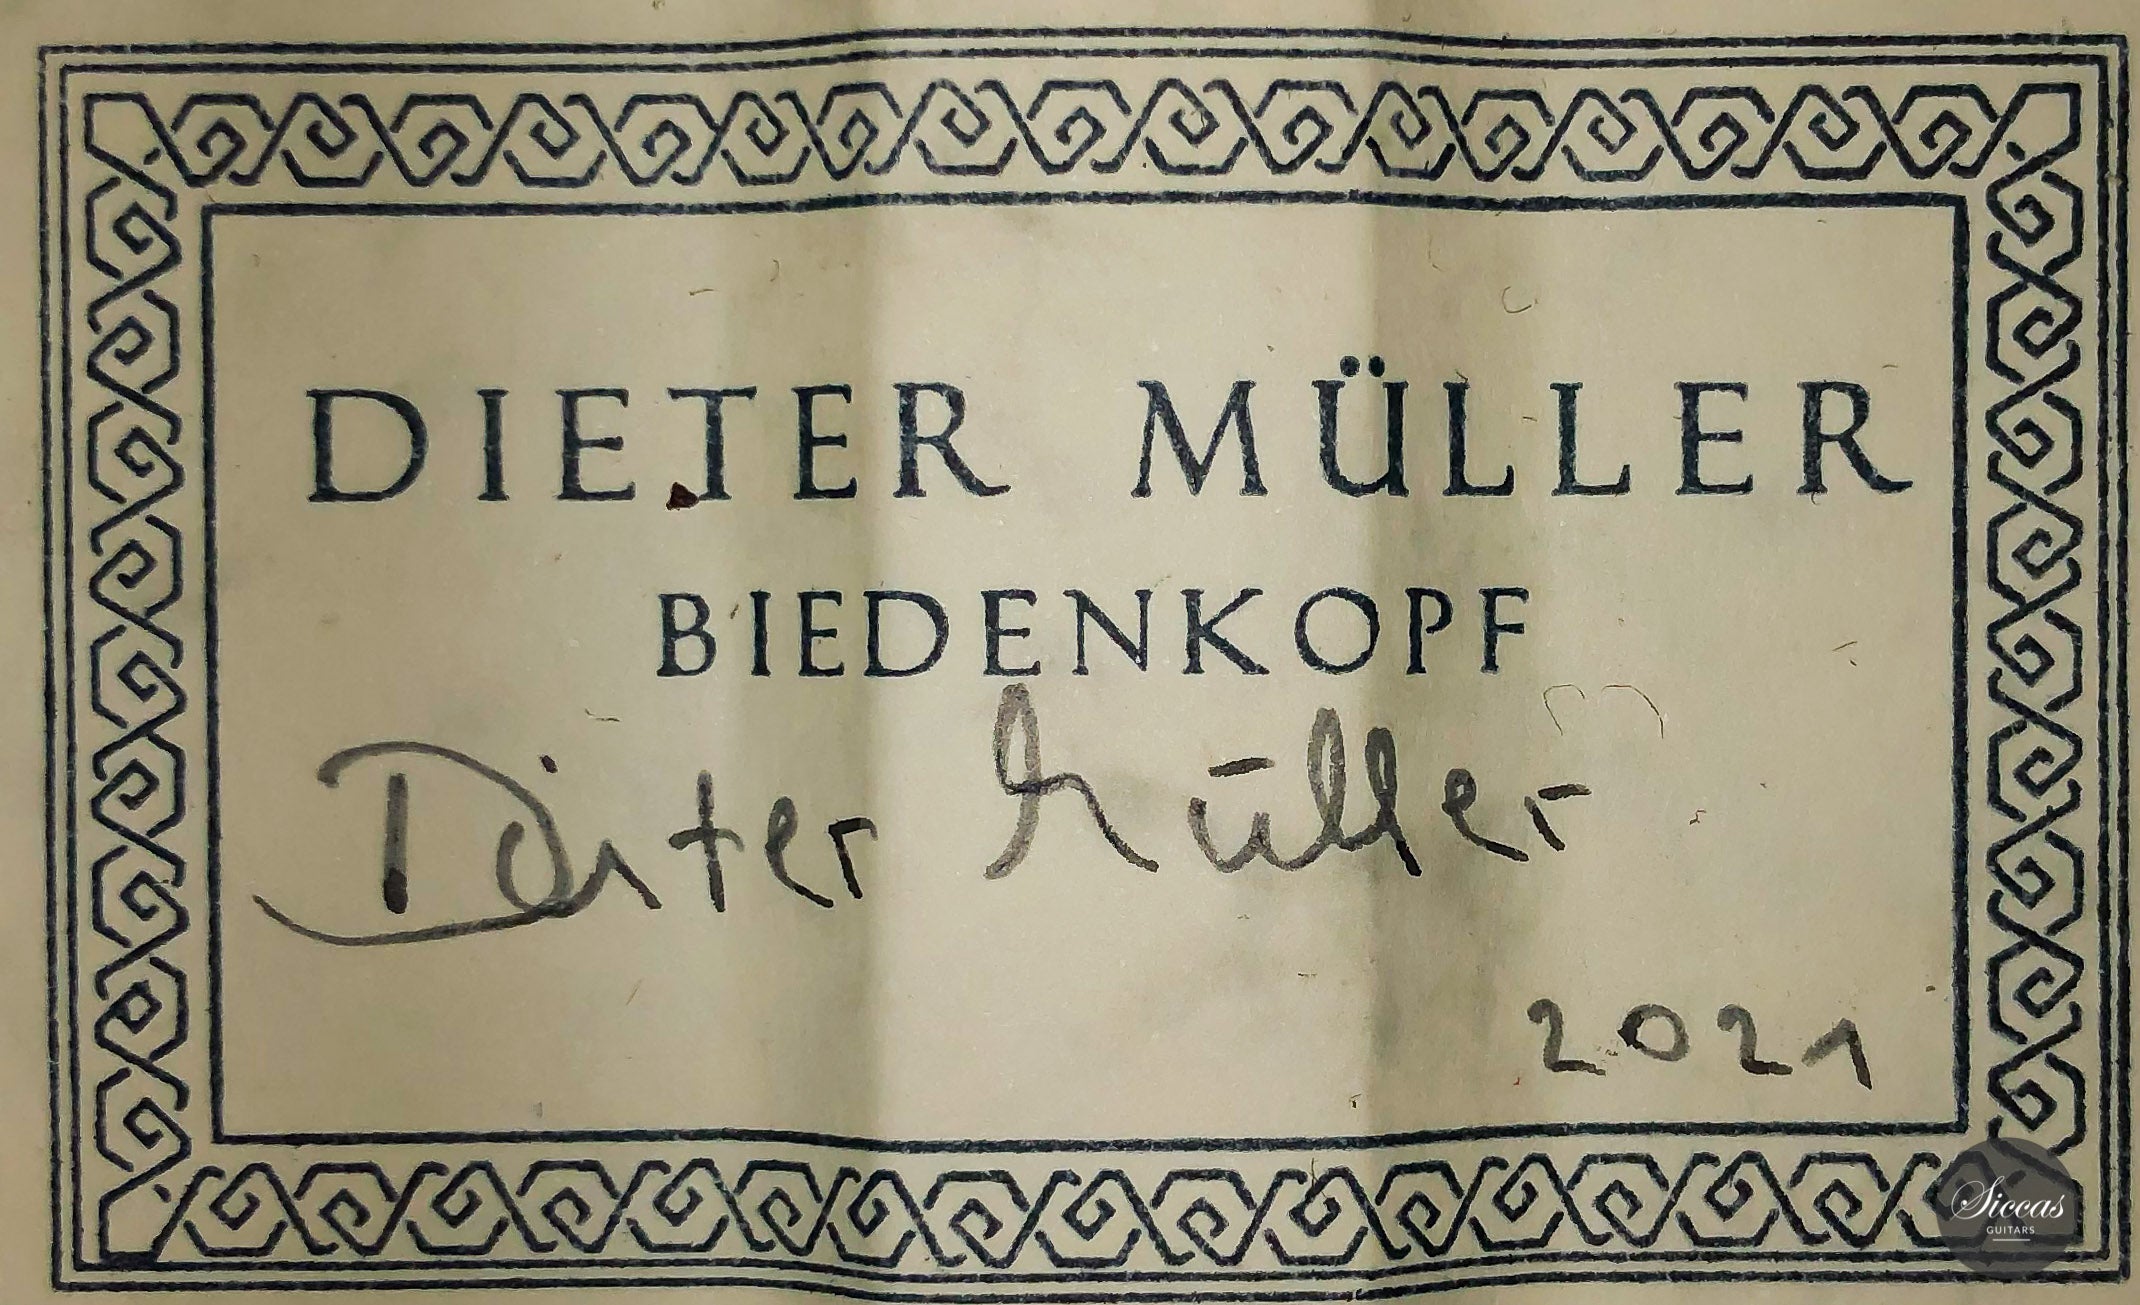 DIETER MÜLLER
BIEDENKOPF
Dieter Müller
2021
Siccas
GUITARS